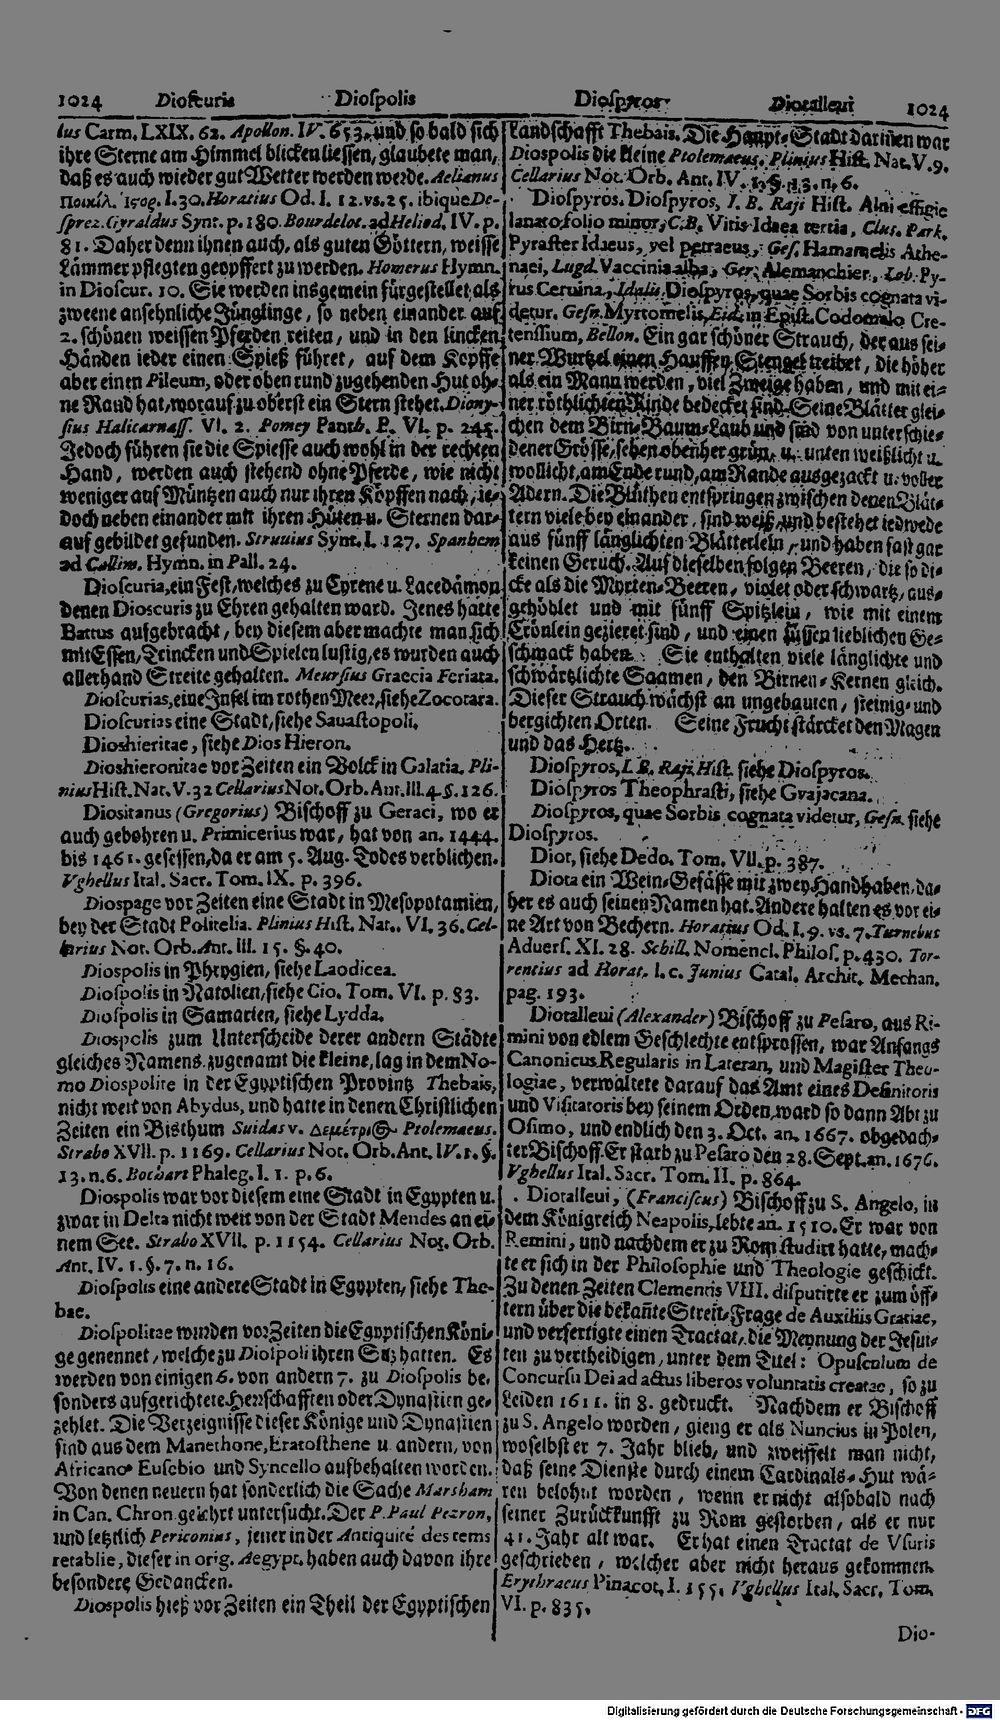 1024 Dioscuris Diospolis Diospyros Diotallevi 1024
lus Carm. LXIX. 62. Apollon. IV. 653. und so bald sich
ihre Sterne am Himmel blicken liessen, glaubete man,
daß es auch wieder gut Wetter werden werde. Aelianus
Ποικίλ. Ἱςορ. I. 30. Horatius Od. I. 12. vs. 25. ibique De-
sprez. Gyraldus Synt. p. 180. Bourdelot. ad Heliod. IV. p.
81. Daher denn ihnen auch, als guten Göttern, weisse
Lämmer pflegten geopffert zu werden. Homerus Hymn.
in Dioscur. 10. Sie werden insgemein fürgestellet als
zweene ansehnliche Jünglinge, so neben einander auf
2. schönen weissen Pferden reiten, und in den lincken
Händen ieder einen Spieß führet, auf dem Kopffe
aber einen Pileum, oder oben rund zugehenden Hut oh-
ne Rand hat, worauf zu oberst ein Stern stehet. Diony-
sius Halicarnass. VI. 2. Pomey Panth. P. VI. p. 245.
Jedoch führen sie die Spiesse auch wohl in der rechten
Hand, werden auch stehend ohne Pferde, wie nicht
weniger auf Müntzen auch nur ihren Köpffen nach, ie-
doch neben einander mit ihren Hüten u. Sternen dar-
auf gebildet gefunden. Struvius Synt. I. 127. Spanhem
ad Callim. Hymn. in Pall. 24.
Dioscuria, ein Fest, welches zu Cyrene u. Lacedämon
denen Dioscuris zu Ehren gehalten ward. Jenes hatte
Battus aufgebracht, bey diesem aber machte man sich
mit Essen, Trincken und Spielen lustig, es wurden auch
allerhand Streite gehalten. Meursius Graecia Feriata.
Dioscurias, eine Insel im rothen Meer, siehe Zocotara.
Dioscurias eine Stadt, siehe Savastopoli.
Dioshieritae, siehe Dios Hieron.
Dioshieronitae vor Zeiten ein Volck in Galatia. Pli-
nius Hist. Nat. V. 32 Cellarius Not. Orb. Ant. III. 4. §. 126.
Diositanus (Gregorius) Bischoff zu Geraci, wo er
auch gebohren u. Primicerius war, hat von an. 1444.
bis 1461. gesessen, da er am 5. Aug. Todes verblichen.
Vghellus Ital. Sacr. Tom. IX. p. 396.
Diospage vor Zeiten eine Stadt in Mesopotamien,
bey der Stadt Politelia. Plinius Hist. Nat. VI. 36. Cel-
larius Not. Orb. Ant. III. 15. §. 40.
Diospolis in Phrygien, siehe Laodicea.
Diospolis in Natolien, siehe Cio. Tom. VI. p. 83.
Diospolis in Samarien, siehe Lydda.
Diospolis zum Unterscheide derer andern Städte
gleiches Namens zugenamt die kleine, lag in dem No-
mo Diospolite in der Egyptischen Provintz Thebais,
nicht weit von Abydus, und hatte in denen Christlichen
Zeiten ein Bisthum Suidas v. Δεμέτρι Ptolemaeus.
Strabo XVII. p. 1169. Cellarius Not. Orb. Ant. IV. 1. §.
13. n. 6. Bochart Phaleg. I. 1. p. 6.
Diospolis war vor diesem eine Stadt in Egypten u.
zwar in Delta nicht weit von der Stadt Mendes an ei-
nem See. Strabo XVII. p. 1154. Cellarius Not. Orb.
Ant. IV. 1. §. 7. n. 16.
Diospolis eine andere Stadt in Egypten, siehe The-
bae.
Diospolitae wurden vor Zeiten die Egyptischen Köni-
ge genennet, welche zu Diospoli ihren Sitz hatten. Es
werden von einigen 6. von andern 7. zu Diospolis be-
sonders aufgerichtete Herrschafften oder Dynastien ge-
zehlet. Die Verzeignisse dieser Könige und Dynastien
sind aus dem Manethone, Eratosthene u. andern, von
Africano Eusebio und Syncello aufbehalten worden.
Von denen neuern hat sonderlich die Sache Marsham
in Can. Chron gelehrt untersucht. Der P. Paul Pezron,
und letztlich Perizonius, jener in der Antiquité des tems
retablie, dieser in orig. Aegypt. haben auch davon ihre
besondere Gedancken.
Diospolis hieß vor Zeiten ein Theil der Egyptischen
Landschafft Thebais. Die Haupt-Stadt darinen war
Diospolis die kleine Ptolemaeus. Plinius Hist. Nat. V. 9.
Cellarius Not. Orb. Ant. IV. 1. §. 13. n. 6.
Diospyros. Diospyros, J. B. Raji Hist. Alni effigie
lanato folio minor, C. B. Vitis Idaea tertia, Clus. Park.
Pyraster Idaeus, vel petraeus, Ges. Hamamelis Athe-
naei, Lugd. Vaccinia alba, Ger. Alemanchier, Lob. Py-
rus Cervina, Idalis Diospyros, quae Sorbis cognata vi-
detur, Gesn. Myrtomelis, Eid. in Epist. Codomalo Cre-
tensium, Bellon. Ein gar schöner Strauch, der aus sei-
ner Wurtzel einen Hauffen Stengel treibet, die höher
als ein Mann werden, viel Zweige haben, und mit ei-
ner röthlichten Rinde bedecket sind. Seine Blätter glei-
chen dem Birn-Baum-Laub und sind von unterschie-
dener Grösse, sehen obenher grün, u. unten weißlicht u.
wollicht, am Ende rund, am Rande ausgezackt u. voller
Adern. Die Blüthen entspringen zwischen denen Blät-
tern viele bey einander, sind weiß, und bestehet iedwede
aus fünff länglichten Blätterlein, und haben fast gar
keinen Geruch. Auf dieselben folgen Beeren, die so di-
cke als die Myrten-Beeren, violet oder schwartz, aus-
gehöhlet und mit fünff Spitzlein, wie mit einem
Crönlein gezieret sind, und einen süssen lieblichen Ge-
schmack haben. Sie enthalten viele länglichte und
schwärtzlichte Saamen, den Birnen-Kernen gleich.
Dieser Strauch wächst an ungebauten, steinig- und
bergichten Orten. Seine Frucht stärcket den Magen
und das Hertz.
Diospyros, I. B. Raji Hist. siehe Diospyros.
Diospyros Theophrasti, siehe Gvajacana.
Diospyros, quae Sorbis cognata videtur, Gesn. siehe
Diospyros.
Diot, siehe Dedo. Tom. VII. p. 387.
Diota ein Wein-Gefässe mit zwey Handhaben, da-
her es auch seinen Namen hat. Andere halten es vor ei-
ne Art von Bechern. Horatius Od. I. 9. vs. 7. Turnebus
Advers. XI. 28. Schill. Nomencl. Philos. p. 430. Tor-
rentius ad Horat. l. c. Junius Catal. Archit. Mechan.
pag. 193.
Diotallevi (Alexander) Bischoff zu Pesaro, aus Ri-
mini von edlem Geschlechte entsprossen, war Anfangs
Canonicus Regularis in Lateran, und Magister Theo-
logiae, verwaltete darauf das Amt eines Definitoris
und Visitatoris bey seinem Orden, ward so dann Abt zu
Osimo, und endlich den 3. Oct. an. 1667. obgedach-
ter Bischoff. Er starb zu Pesaro den 28. Sept. an. 1676.
Vghellus Ital. Sacr. Tom. II. p. 864.
Diotallevi, (Franciscus) Bischoff zu S. Angelo, in
dem Königreich Neapolis, lebte an. 1510. Er war von
Remini, und nachdem er zu Rom studirt hatte, mach-
te er sich in der Philosophie und Theologie geschickt.
Zu denen Zeiten Clementis VIII. disputirte er zum öff-
tern über die bekañte Streit-Frage de Auxiliis Gratiae,
und verfertigte einen Tractat, die Meynung der Jesui-
ten zu vertheidigen, unter dem Titel: Opusculum de
Concursu Dei ad actus liberos voluntatis creatae, so zu
Leiden 1611. in 8. gedruckt. Nachdem er Bischoff
zu S. Angelo worden, gieng er als Nuncius in Polen,
woselbst er 7. Jahr blieb, und zweiffelt man nicht,
daß seine Dienste durch einem Cardinals-Hut wä-
ren belohnt worden, wenn er nicht alsobald nach
seiner Zurückkunfft zu Rom gestorben, als er nur
41. Jahr alt war. Er hat einen Tractat de Vsuris
geschrieben, welcher aber nicht heraus gekommen.
Erythraeus Pinacot. I. 155. Vghellus Ital. Sacr. Tom.
VI. p. 835.
Dio-
Digitalisierung gefördert durch die Deutsche Forschungsgemeinschaft - DFG